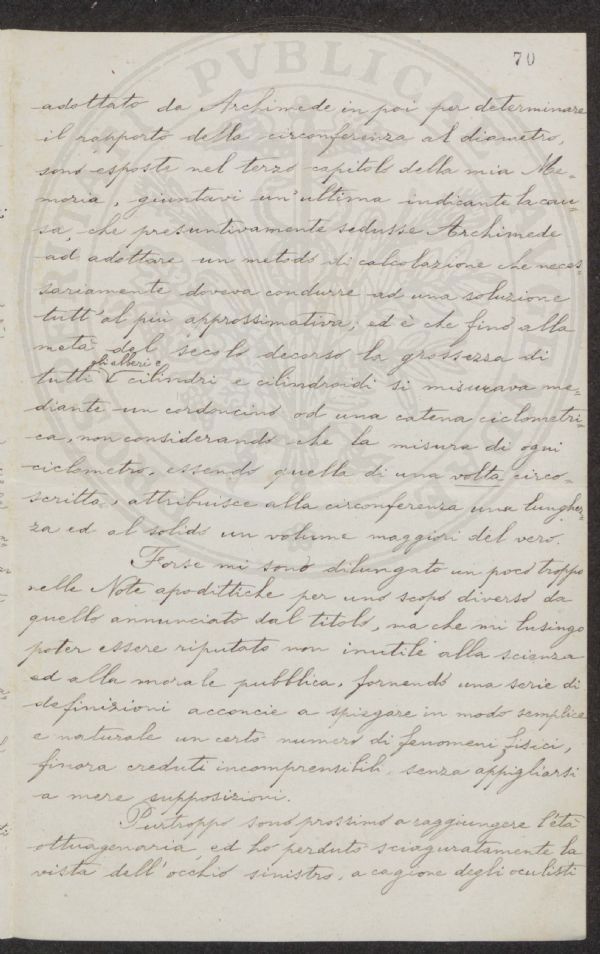 70
adottato da Archimede in poi per determinare
il rapporto della circonferenza al diametro,
sono esposte nel terzo capitolo della mia Me-
moria, giuntavi un'ultima indicante la cau-
sa, che presuntivamente sedusse Archimede
ad adottare un metodo di calcolazione che neces-
sariamente doveva condurre ad una soluzione
tutt'al più approssimativa; ed è che fino alla
metà del secolo decorso la grossezza di
gli alberi e
tutti i cilindri e cilindroidi si misurava me-
diante un cordoncino od una catena ciclometri-
ca, non considerando che la misura di ogni
ciclometro, essendo quella di una volta circo-
scritta, attribuisce alla circonferenza una lunghez-
za ed al solido un volume maggiori del vero.
Forse mi sono dilungato un poco troppo
nelle Note apodittiche per uno scopo diverso da
quello annunciato dal titolo, ma che mi lusingo
poter essere riputato non inutile alla scienza
ed alla morale pubblica, fornendo una serie di
definizioni acconcie a spiegare in modo semplice
e naturale un certo numero di fenomeni fisici,
finora creduti incomprensibili, senza appigliarsi
a mere supposizioni.
Purtroppo sono prossimo a raggiungere l'età
ottuagenaria, ed ho perduto sciaguratamente la
vista dell'occhio sinistro, a cagione degli oculisti
PVBLICA